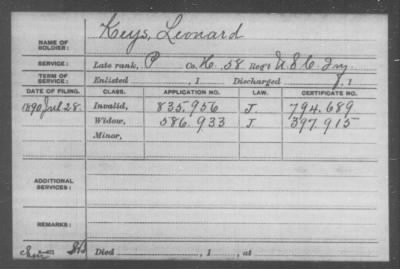 NAME OF SOLDIER: Keys, Leonard
SERVICE: Late rank, P Co. H. 58 Reg't U.S.C. Inf.
TERM OF SERVICE: Enlisted , 1 Discharged , 1
DATE OF FILING. CLASS. APPLICATION NO. LAW. CERTIFICATE NO.
1890 Jul. 28. Invalid, 835.956 J. 794.689
Widow, 586.933 J. 397.915
Minor,
ADDITIONAL SERVICES:
REMARKS:
Died , 1 , at